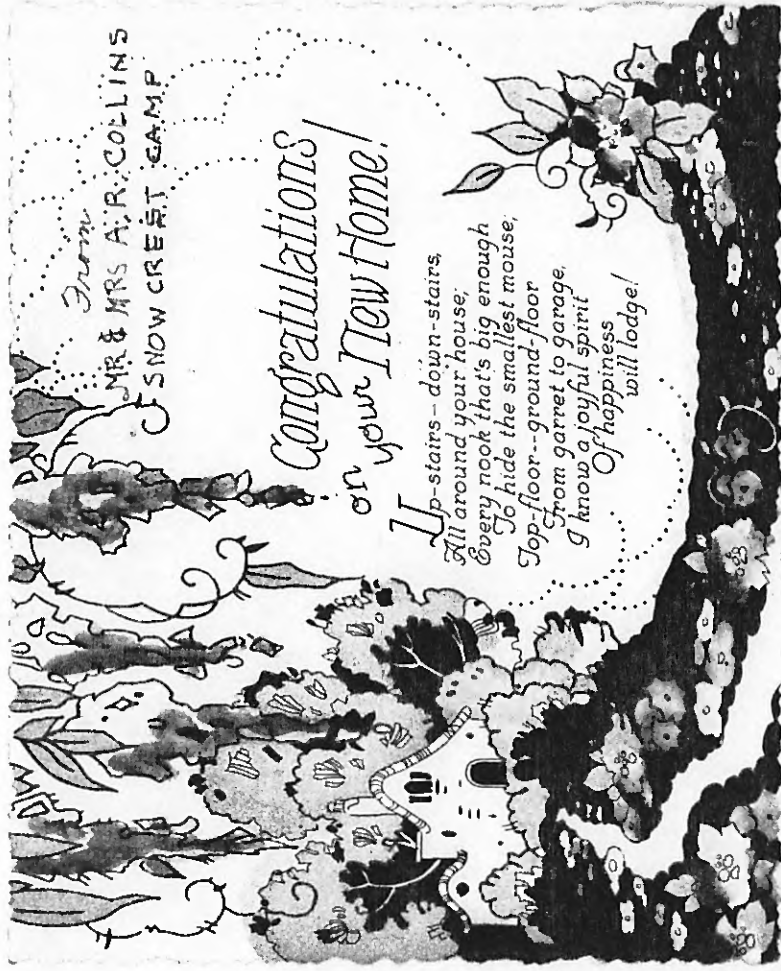 From
MR & MRS A.R. COLLINS
SNOW CREST CAMP
Congratulations
on your New Home!
Up-stairs-down-stairs,
All around your house;
Every nook that's big enough
To hide the smallest mouse;
Top-floor--ground-floor
From garret to garage,
I know a joyful spirit
Of happiness
will lodge!